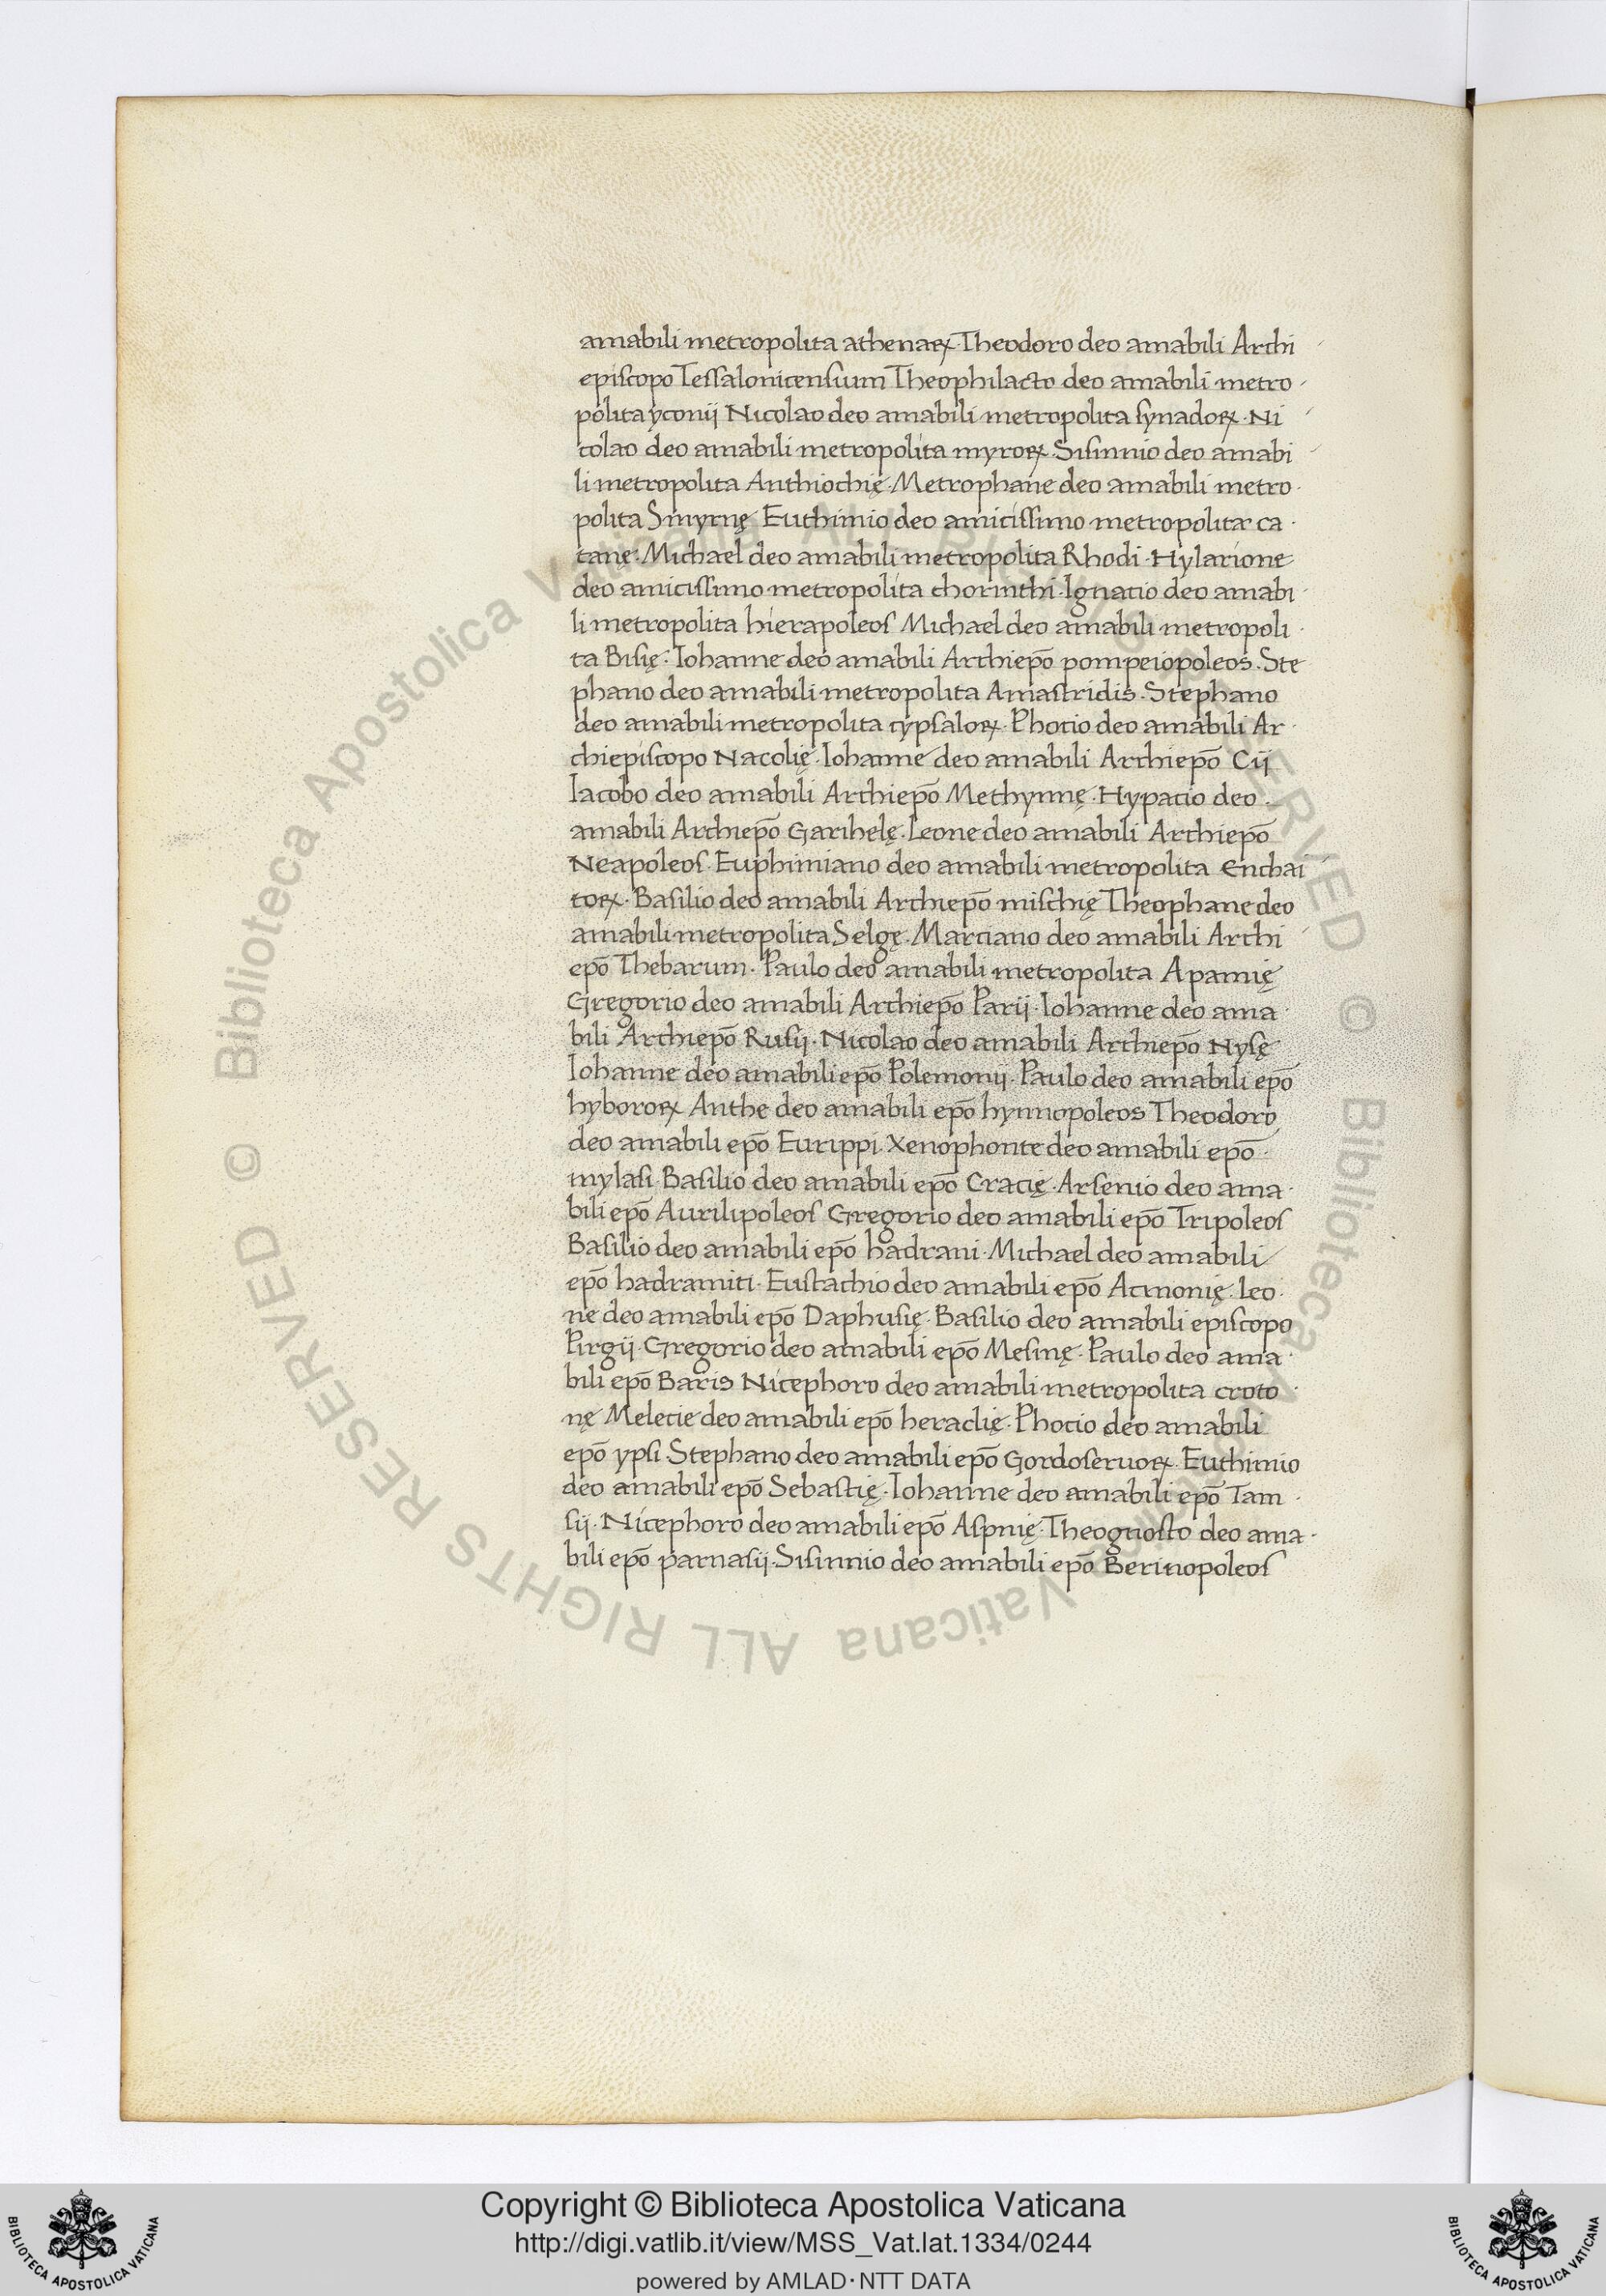 amabili metropolita athenaꝝ Theodoro deo amabili Archi
episcopo Tessalonicensium Theophilacto deo amabili metro
polita yconij Nicolao deo amabili metropolita synadoꝝ · Ni
colao deo amabili metropolita myroꝝ · Sisinnio deo amabi
li metropolita Anthiochię · Metrophane deo amabili metro
polita Smyrnę Euthimio deo amicissimo metropolita ca
tane · Michael deo amabili metropolita Rhodi · Hylarione
deo amicissimo metropolita chorinthi · Ignatio deo amabi
li metropolita hierapoleos Michael deo amabili metropoli
ta Bisię · Iohanne deo amabili Archiepō pompeiopoleos · Ste
phano deo amabili metropolita Amastridis · Stephano
deo amabili metropolita cypsaloꝝ · Photio deo amabili Ar
chiepiscopo Nacolię · Iohanne deo amabili Archiepō Cij
Iacobo deo amabili Archiepō Methynnę · Hypatio deo
amabili Archiepō Garihelę · Leone deo amabili Archiepō
Neapoleos · Euphimiano deo amabili metropolita Enchai
toꝝ · Basilio deo amabili Archiepō mischię Theophane deo
amabili metropolita Selgę · Marciano deo amabili Archi
epō Thebarum · Paulo deo amabili metropolita Apamię
Gregorio deo amabili Archiepō Parij · Iohanne deo ama
bili Archiepō Rusij · Nicolao deo amabili Archiepō Nysę
Iohanne deo amabili epō Polemonij · Paulo deo amabili epō
hyboroꝝ Anthe deo amabili epō hynnopoleos Theodoro
deo amabili epō Eurippi · Xenophonte deo amabili epō
mylasi · Basilio deo amabili epō Cracię · Arsenio deo ama
bili epō Aurilipoleos Gregorio deo amabili epō Tripoleos
Basilio deo amabili epō hadrani · Michael deo amabili
epō hadramiti · Eustachio deo amabili epō Acmonię · Leo
ne deo amabili epō Daphusię · Basilio deo amabili episcopo
Pirgij · Gregorio deo amabili epō Mesinę · Paulo deo ama
bili epō Baris Nicephoro deo amabili metropolita croto
nę Meletie deo amabili epō heraclię · Photio deo amabili
epō ypsi · Stephano deo amabili epō Gordoseruoꝝ · Euthimio
deo amabili epō Sebastię · Iohanne deo amabili epō Tam
sij · Nicephoro deo amabili epō Aspnię · Theognosto deo ama
bili epō parnasij · Sisinnio deo amabili epō Berinopoleos
© Biblioteca Apostolica Vaticana ALL RIGHTS RESERVED
© Biblioteca Apostolica Vaticana ALL RIGHTS RESERVED
Copyright © Biblioteca Apostolica Vaticana
http://digi.vatlib.it/view/MSS_Vat.lat.1334/0244
powered by AMLAD·NTT DATA
BIBLIOTECA APOSTOLICA VATICANA
BIBLIOTECA APOSTOLICA VATICANA